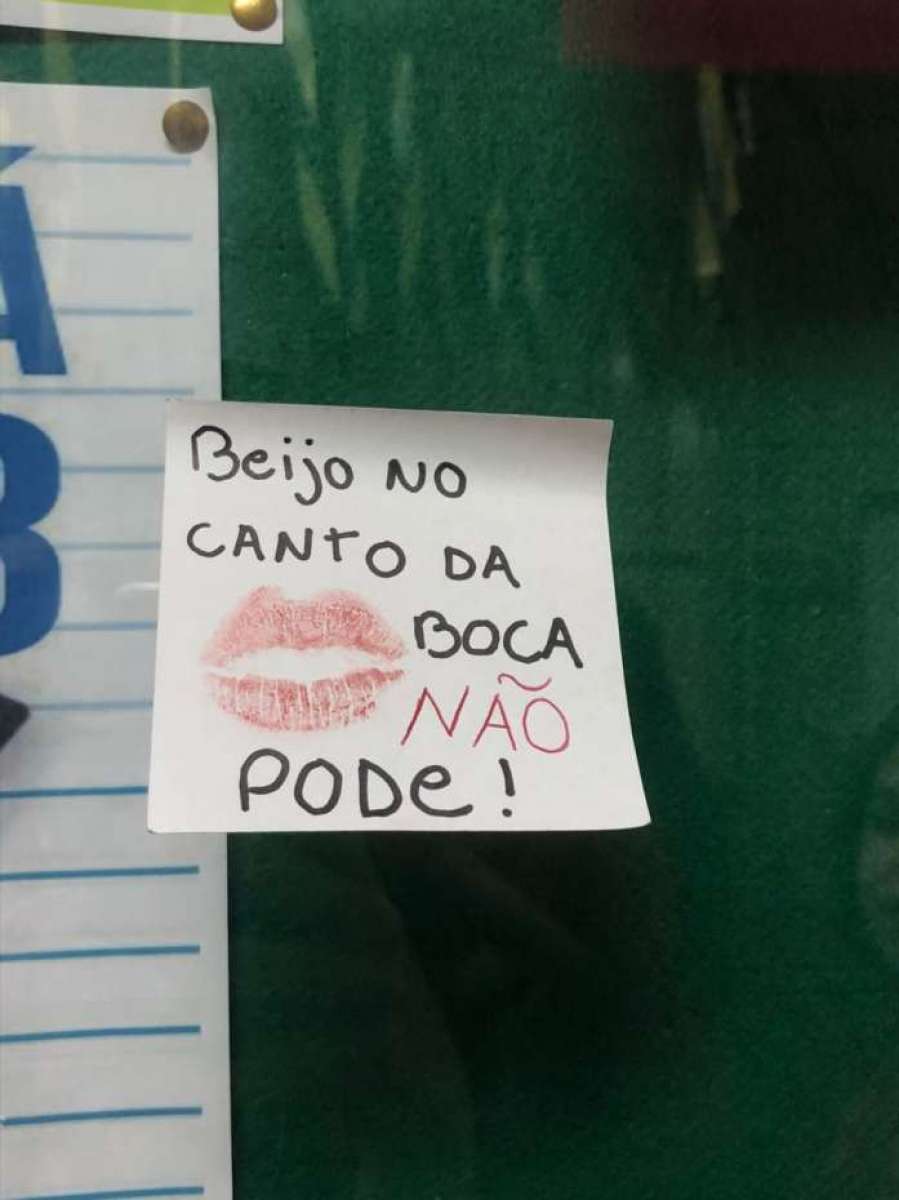 Á
B
Beijo NO
CANTO DA
BOCA
NÃO
PODe!